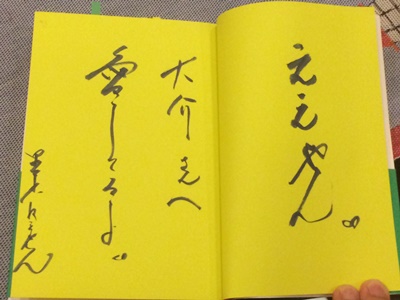 ええやん。
大介さんへ
愛してるよ。